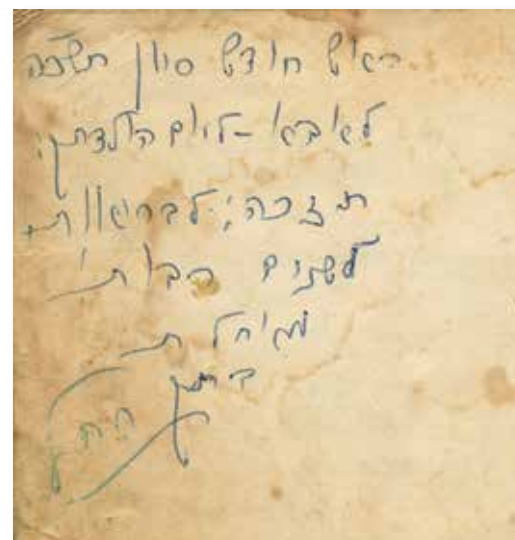 ראש חודש סיון תשכ"ה
לאבא - ליום הולדתך:
תזכה; לבריאות
לשנים רבות!
מאיחלת
ביתך